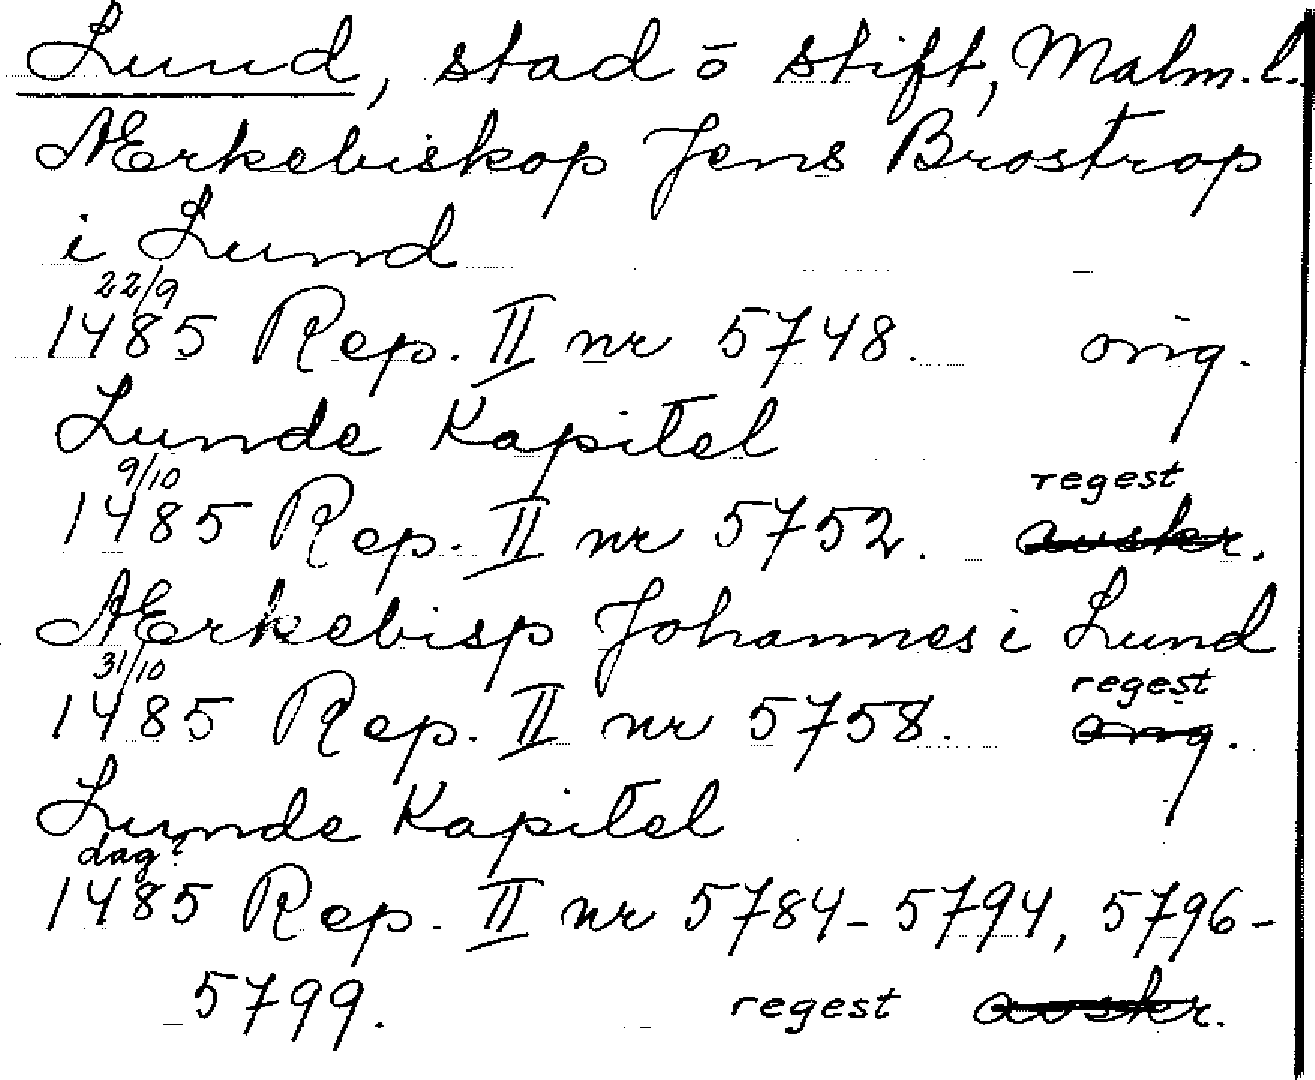 Lund, stad ō stift, Malm. l.
Ærkebiskop Jens Brostrop
i Lund
22/9
1485 Rep. II nr 5748. orig.
Lunde Kapitel
9/10 regest
1485 Rep. II nr 5752. avskr.
Ærkebisp Johannes i Lund
31/10 regest
1485 Rep. II nr 5758. orig.
Lunde Kapitel
dag?
1485 Rep. II nr 5784-5794, 5796-
5799. regest avskr.